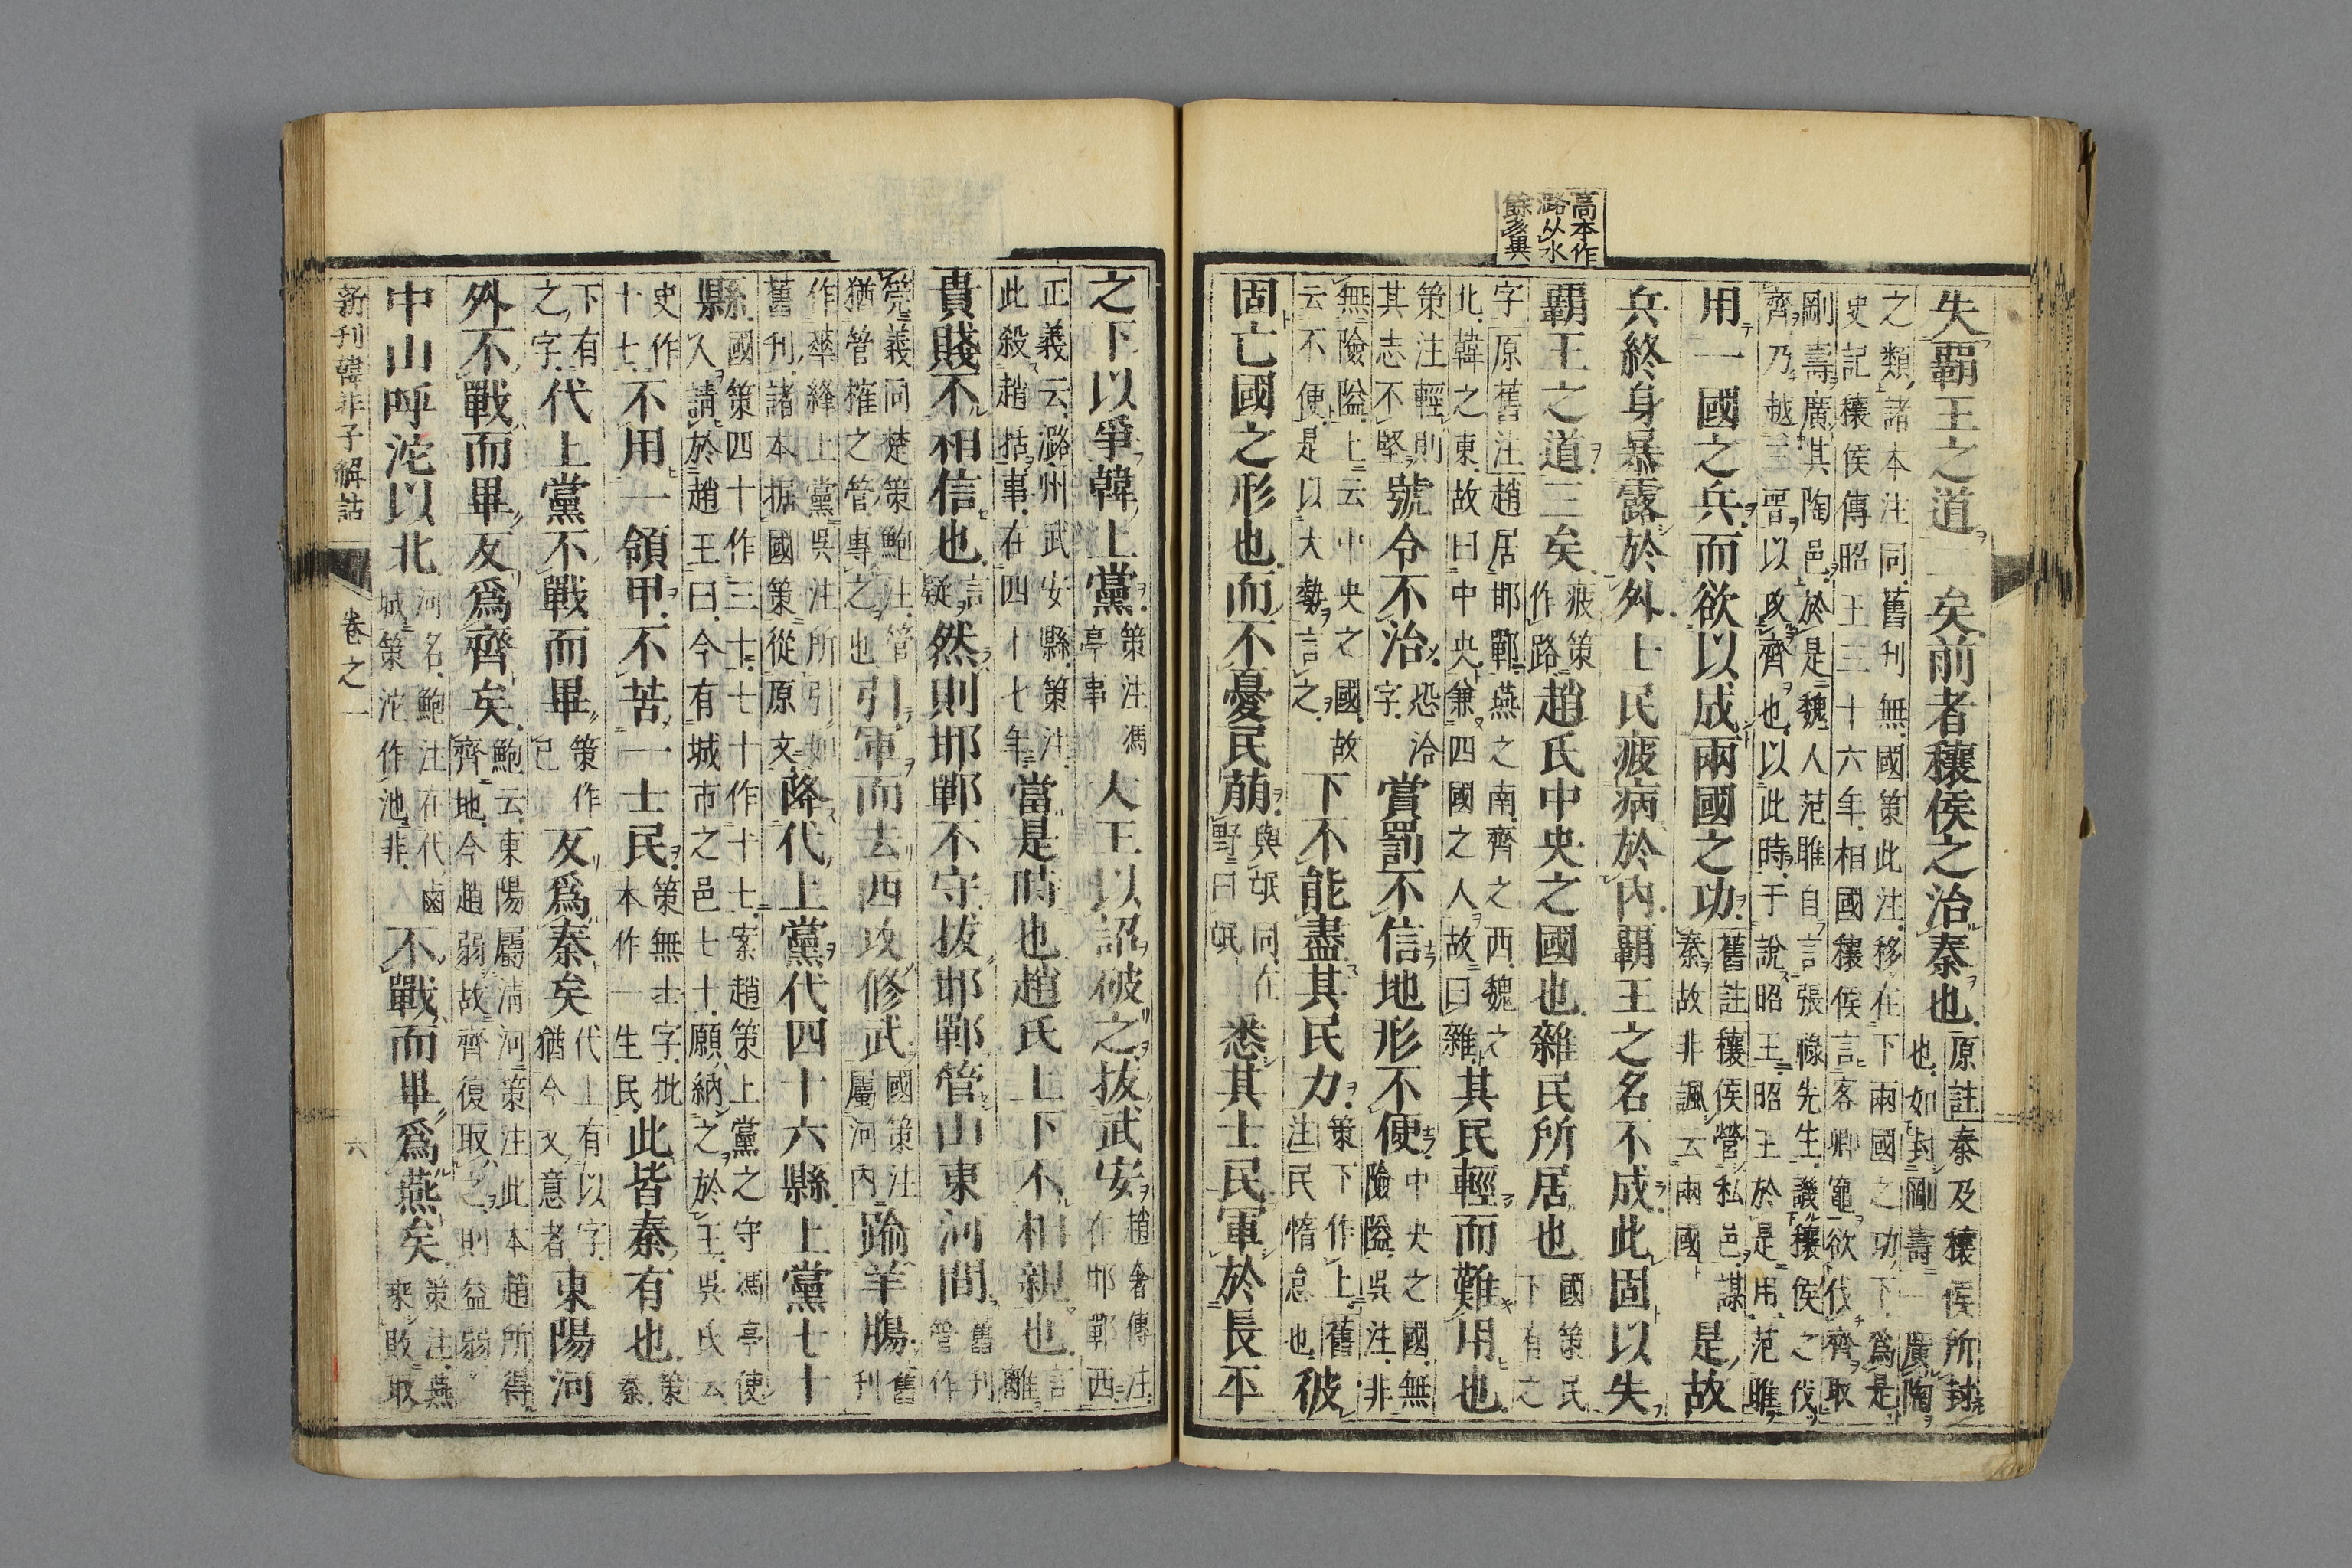 高本作
潞从水
失覇王之道二矣前者穰侯之治秦也原註秦及穰侯所封
也如封剛壽一廣陶
之類諸本注同舊刊無國策此注移在下兩國之功下爲是
史記穰侯傳昭王三十六年相國穰侯言客卿竈欲伐齊取
剛壽廣其陶邑於是魏人范睢自言張祿先生譏穰侯之伐
齊乃越三晋以攻齊也以此時于說昭王昭王於是用范睢
用一國之兵而欲以成兩國之功舊註穰侯營私邑謀
秦故非諷云兩國
是故
兵終身暴露於外士民疲病於內覇王之名不成此固以失
覇王之道三矣疲策
作路
趙氏中央之國也雜民所居也國策民
下有之
字原舊注趙居邯鄲燕之南齊之西魏之
北韓之東故曰中央兼四國之人故曰雜
其民輕而難用也
策注輕則
其志不堅
號令不治恐洽
字
賞罰不信地形不便中央之國無
險隘吳注非
無險隘上云中央之國故
云不便是以大勢言之
下不能盡其民力策下作上舊
注民惰怠也
彼
固亡國之形也而不憂民萠與氓同在
野曰氓
悉其士民軍於長平
之下以爭韓上黨策注馮
亭事
大王以詔破之拔武安趙奢傳注
在邯鄲西
正義云潞州武安縣策注
此殺趙括事在四十七年
當是時也趙氏上下不相親也言
離
貴賤不相信也言
疑
然則邯鄲不守拔邯鄲管山東河間舊刊
管作
筦義同楚策鮑注管
猶管搉之管專之也
引軍而去西攻修武國策注
屬河內
踰羊膓舊
刊
作華絳上黨吳注所引如
舊刊諸本据國策從原文
降代上黨代四十六縣上黨七十
縣國策四十作三十七十作十七案趙策上黨之守馮亭使
人請於趙王曰今有城市之邑七十願納之於王吳氏云
史作
十七
不用一領甲不苦一士民策無士字批
本作一生民
此皆秦有也策
秦
下有
之字
代上黨不戰而畢策作
已
反爲秦矣代上有以字
猶今文意者
東陽河
外不戰而畢反爲齊矣鮑云東陽屬淸河策注此本趙所得
齊地今趙弱故齊復取之則益弱
中山呼沱以北河名鮑注在代鹵
城策沱作池非
不戰而畢爲燕矣策注燕
乘敗取
新刊韓非子解詁 卷之一 六